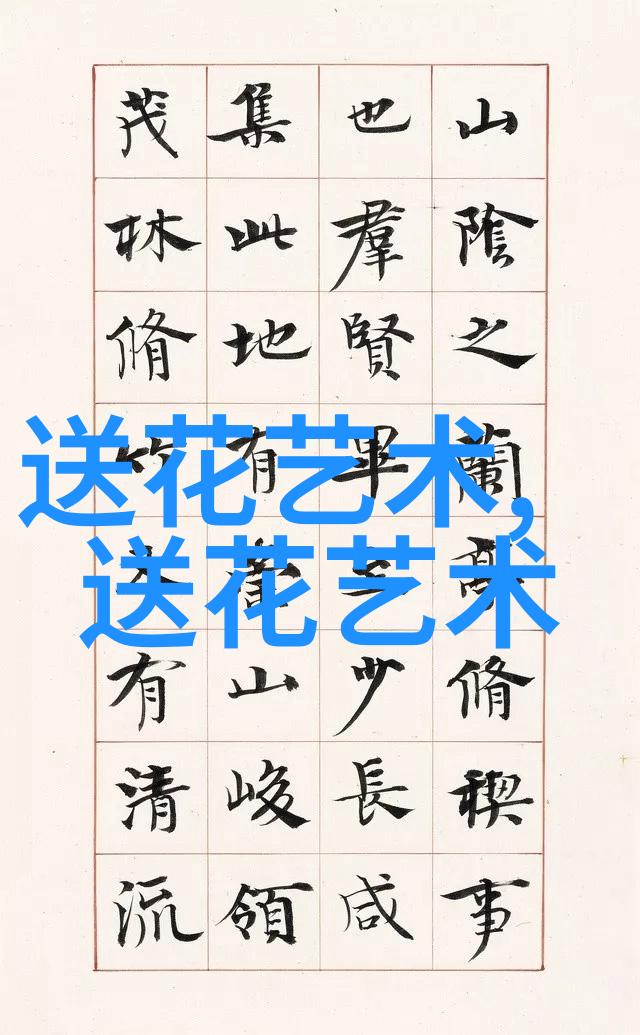 山陰之蘭亭脩禊事
也羣賢畢至少長咸
集此地有崇山峻領
茂林脩竹又有清流
送花艺术,
送花艺术